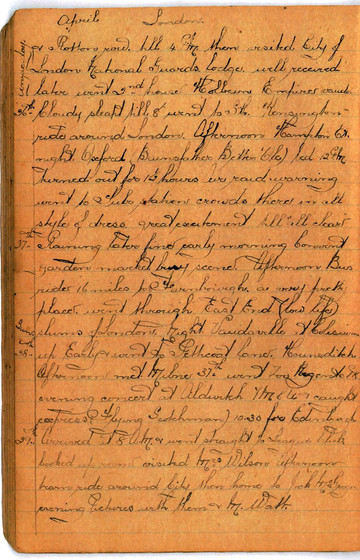 April London.
Rotton row. till 4 PM then visited City of
London National Guards lodge. well received
later went 2nd house Holburn Empire vaude
26th Cloudy slept till 8 went to Sth. Kensington
ride around London. Afternoon Hampton Ct.
night Oxford (Bairnsfather Better 'Ole) bed 12 PM
turned out for 1½ hours air raid warning
went to Tube station crowds there in all
style of dress. great excitement till "all clear"
27th Raining later fine early morning Convent
Garden market busy scene. Afternoon Bus
ride 16 miles to Farnborough. a very pretty
place. went through East End (low life)
slums of London. Night Vaudeville at Coliseum
Sun 28th up Early & went to Petticoat lane. Houndsditch
Afternoon met McLune 37th went Zoo Regents Pk
evening concert at Aldwich YMCA & caught
express (Flying Scotchman) 10.30 for Edinburgh
29th Arrived at 8 AM & went straight to League Club
booked up room visited Mrs Wilson Afternoon
tram ride around city then home to
evening Pictures with them & Mr. Watt.